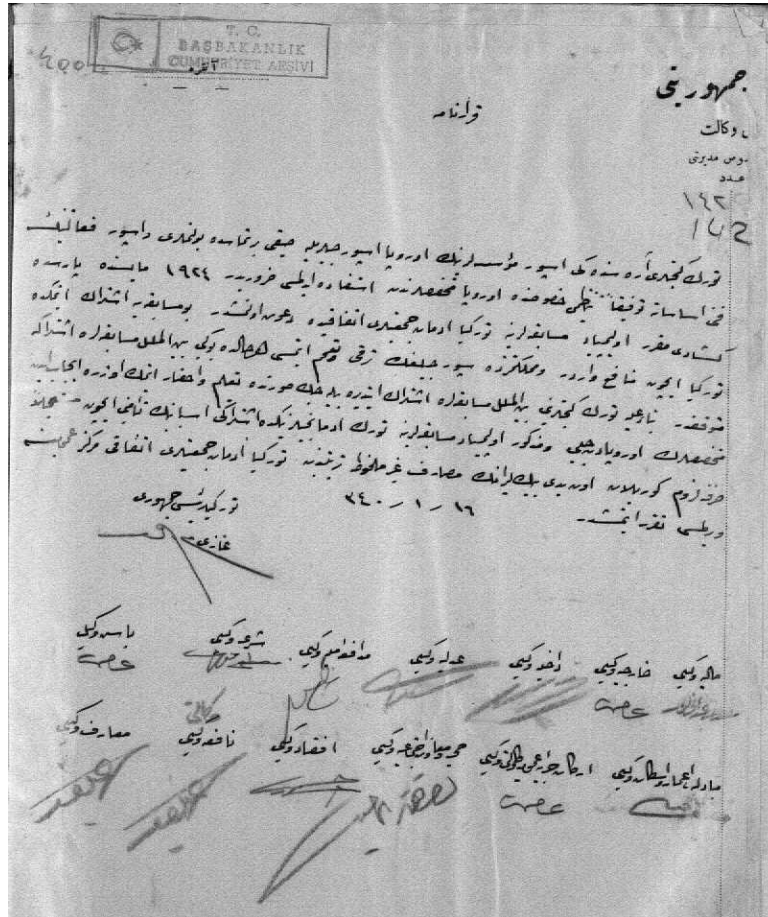 T. C.
BAŞBAKANLIK
CUMHURİYET ARŞİVİ
آنقره
جمهوريتى
وكالت
مديريتى
عدد
١٤٢
قرارنامه
تورك كنجلرى آره سنده كى اسپور مؤسسه لرينك اوروپا اسپور
فنى اساساته توفيقاً تنظيمى خصوصنده اوروپا متخصصلرندن استفاده ايدلمسى ضروريدر ١٩٢٤ مايسنده پارسده
كشادى مقرر اوليمپياد مسابقه لرينه توركيا ادمان جمعيتلرى اتفاقيده دعوت اولنمشدر بو مسابقه يه اشتراك ايتمكده
توركيا ايچون منافع واردر ومملكتمزده سپورجيلغك ترقى وتعمم ايتمسى هر حالده بوكبى بين الملل مسابقه لره اشتراكه
متوقفدر تورك كنجلرينى بين الملل مسابقه لره اشتراك ايتديره بيله جك صورتده تعليم واحضار ايتمك اوزره ايجاب ايدن
متخصصلرك اوروپادن جلبى ومذكور اوليمپياد مسابقه لرينه تورك ادمانجيلرينكده اشتراكى اسبابنك تأمينى ايچون
صرفنه لزوم كوريلان اون يدى بيك ليرانك مصارف غير ملحوظه ترتيبندن توركيا ادمان جمعيتلرى اتفاقى مركز عموميسنه
ويرلمسى تقرر ايتمشدر ١٦ - ١ - ٣٤٠
توركيه رئيس جمهورى
غازى
باش وكيل
شرعيه وكيلى
مدافعه مليه وكيلى
عدليه وكيلى
داخليه وكيلى
خارجيه وكيلى
ماليه وكيلى
معارف وكيلى
نافعه وكيلى
اقتصاد وكيلى
صحيه ومعاونت اجتماعيه وكيلى
اركان حربيه عموميه وكيلى
مبادله اعمار واسكان وكيلى